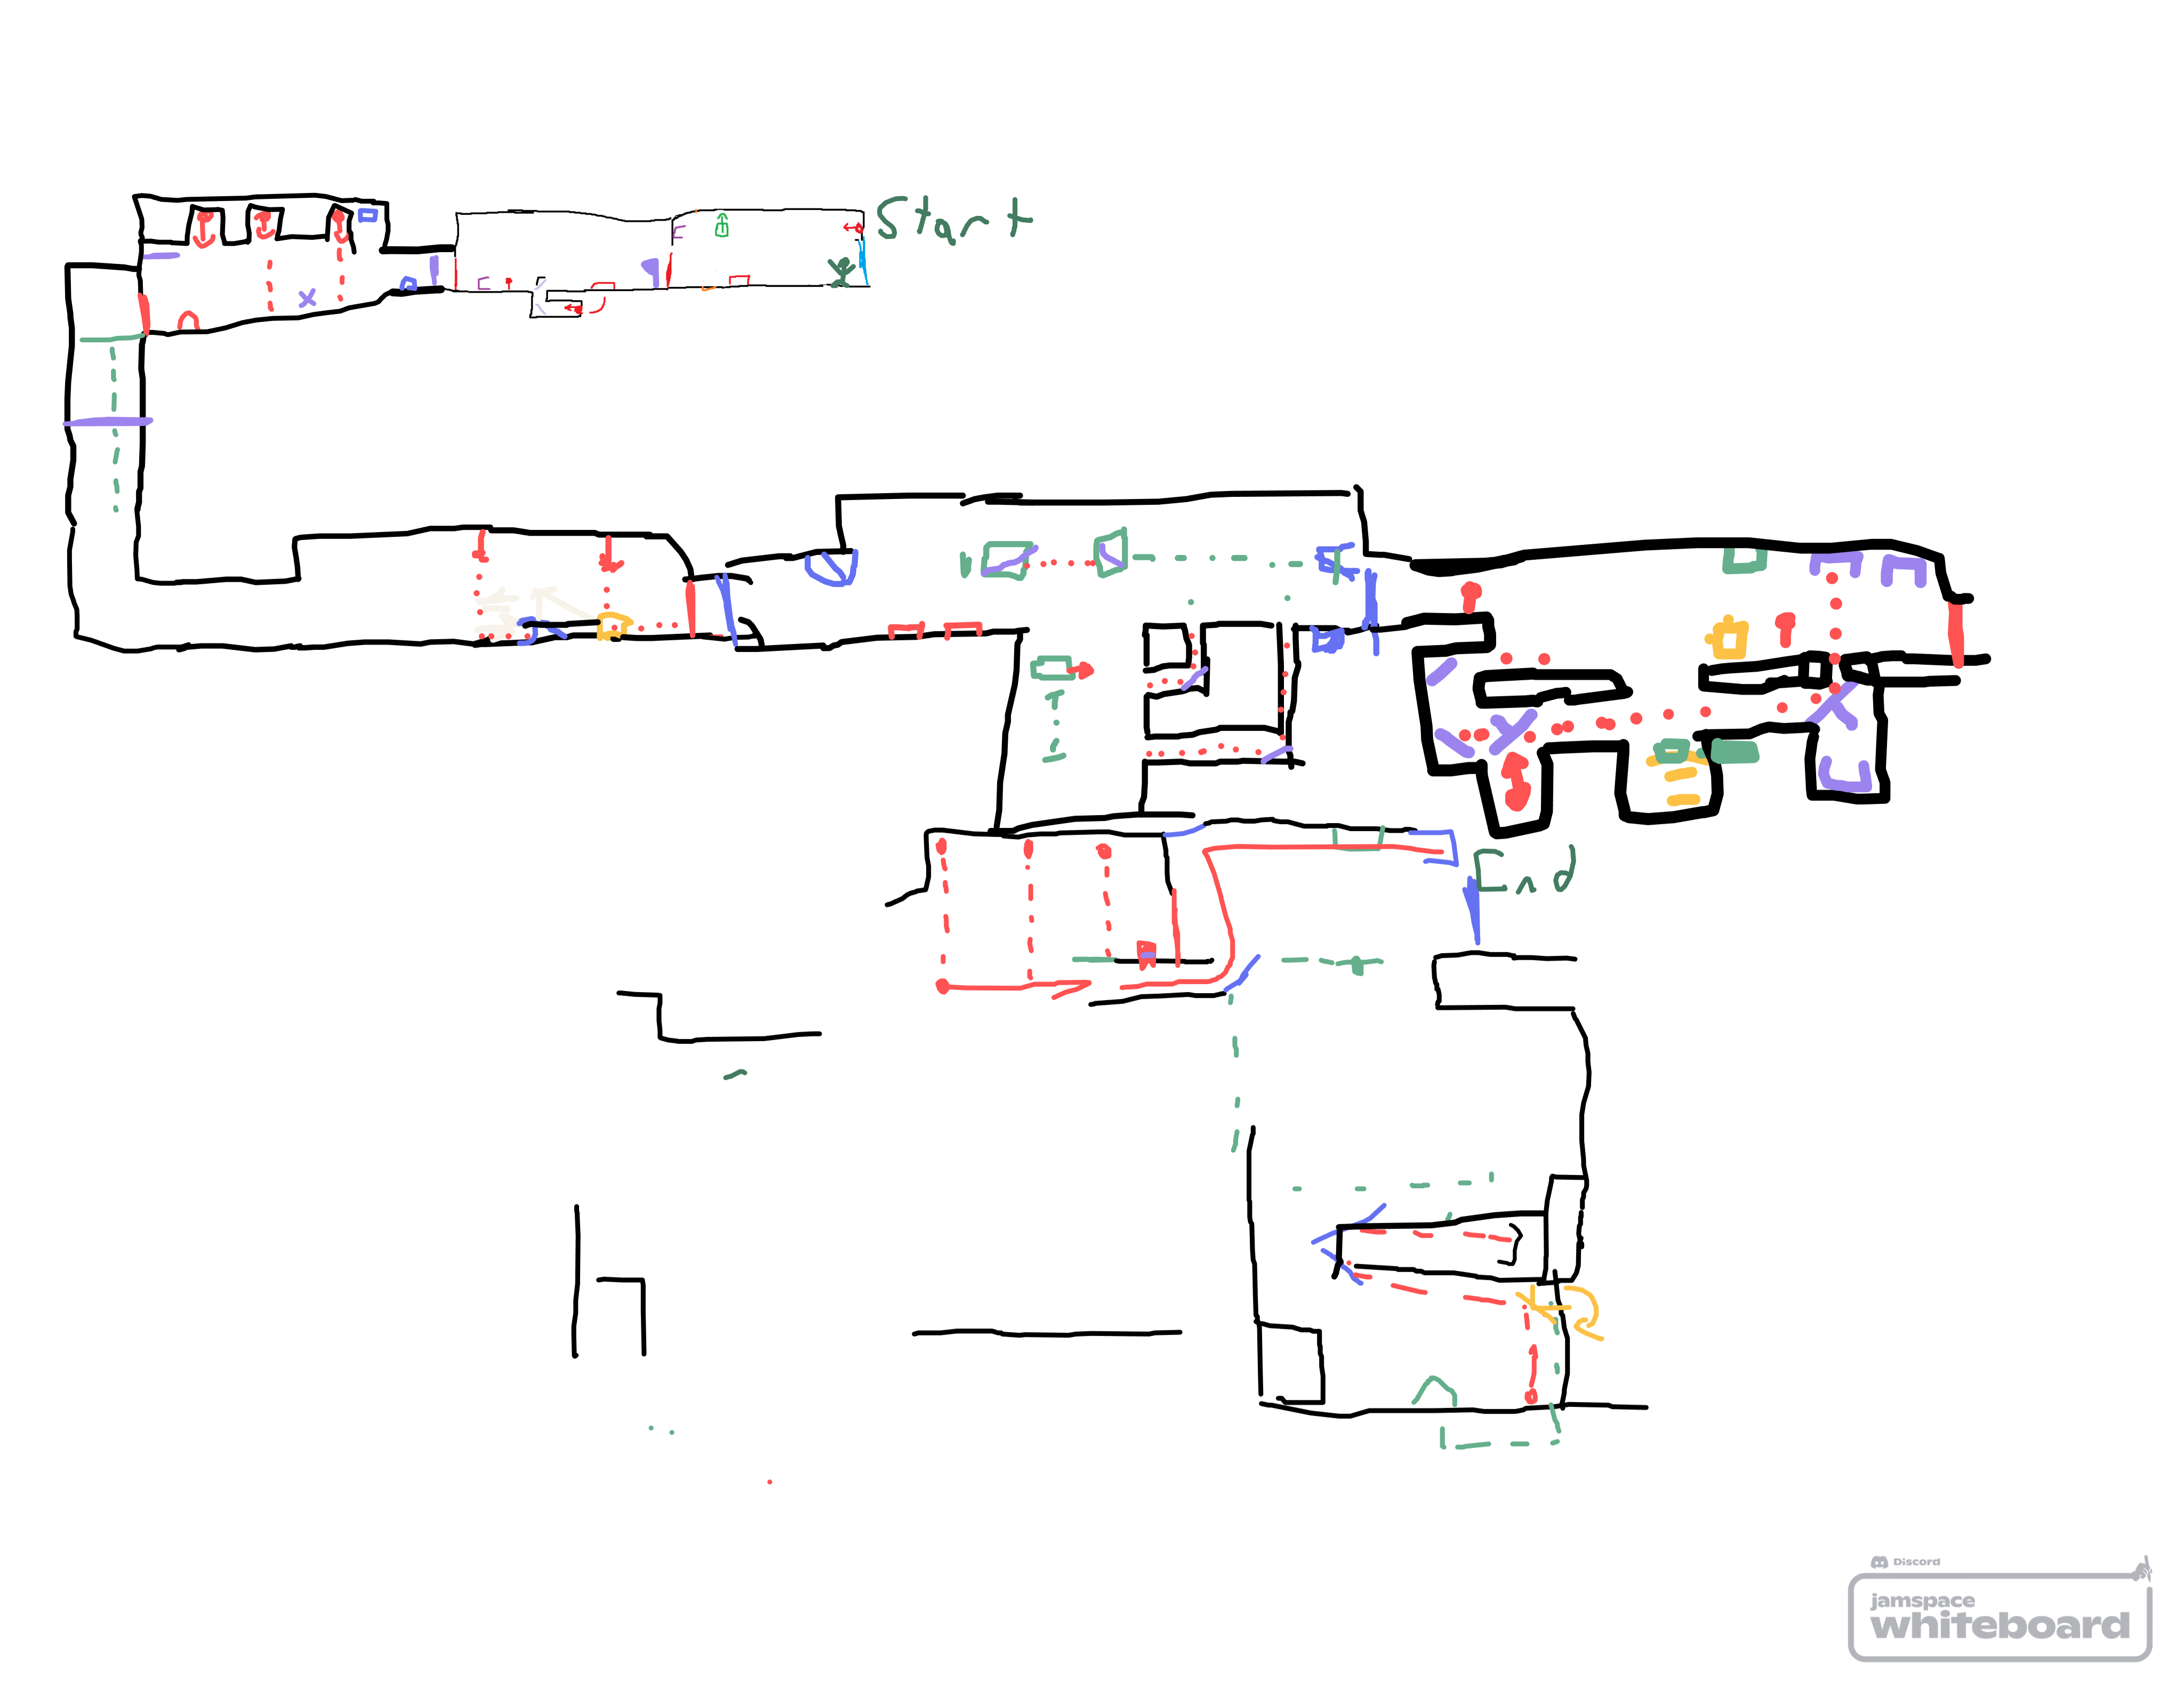 Start
End
Discord
jamspace
whiteboard